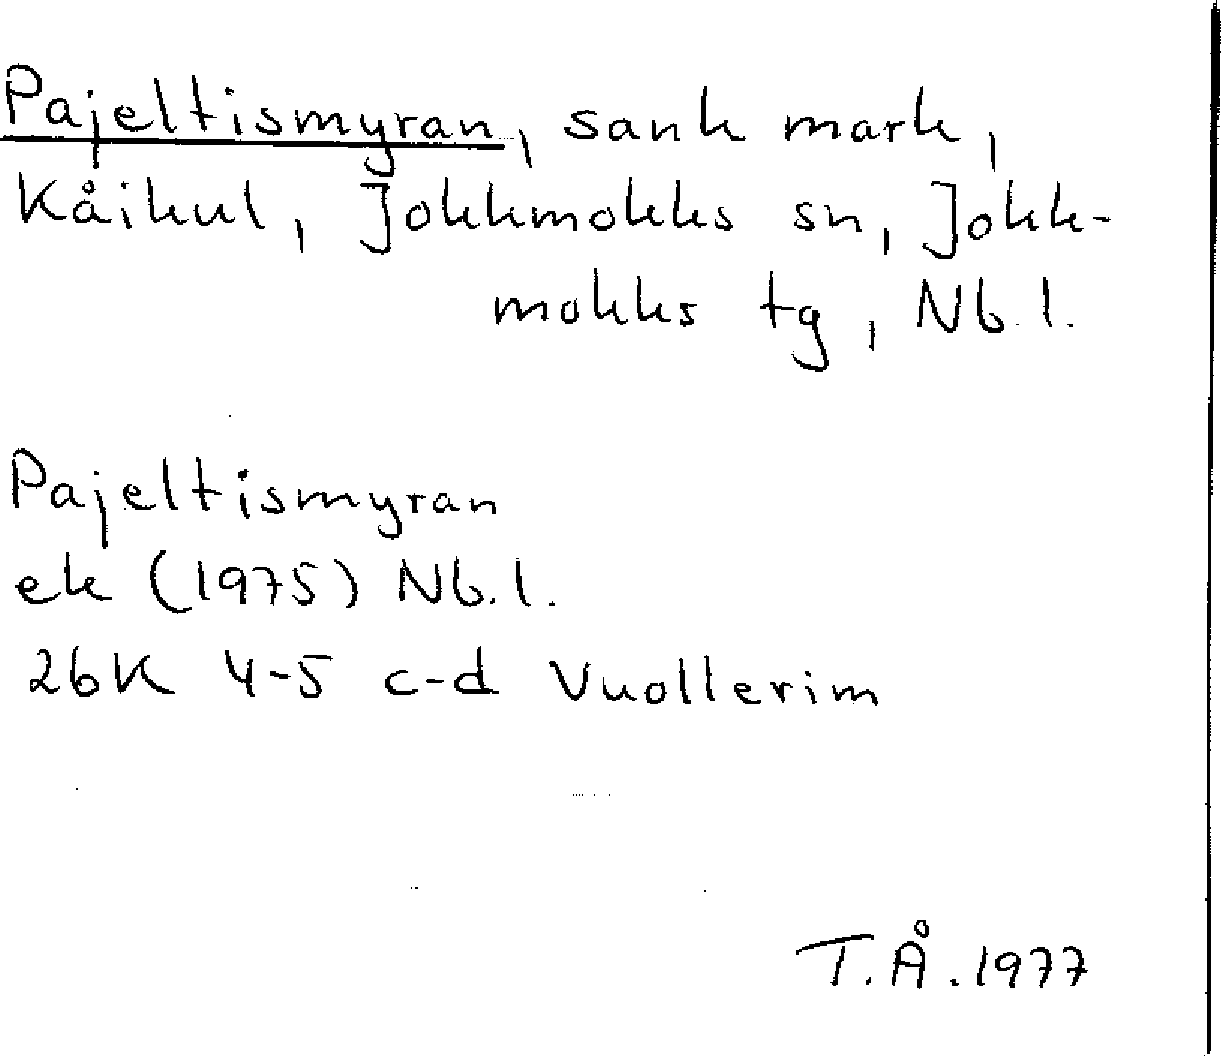 Pajeltismyran, sank mark,
Kåikul, Jokkmokks sn, Jokk-
mokks tg, Nb.l.
Pajeltismyran
ek (1975) Nb.l.
26K 4-5 c-d Vuollerim
T.Å.1977